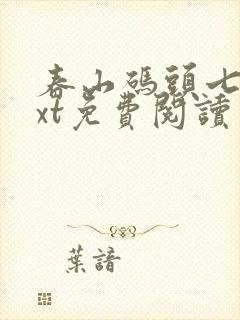 春山碼頭七
xt免費閱讀
葉諳